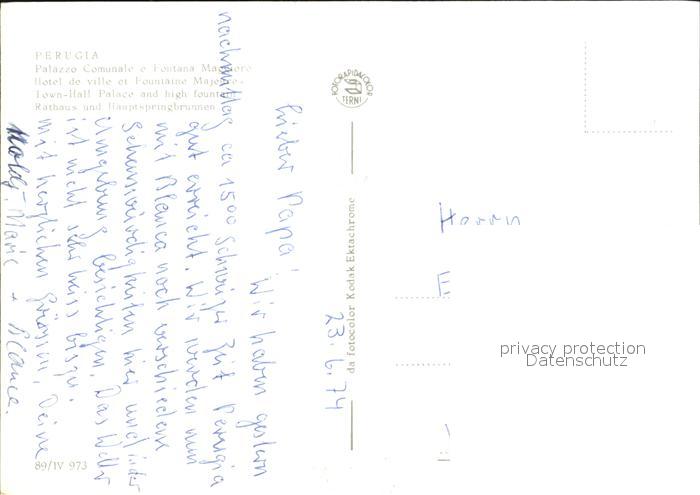 PERUGIA
Palazzo Comunale e Fontana Maggiore
Hotel de ville et Fountaine Majeure
Town-Hall Palace and high fountain
Rathaus und Hauptspringbrunnen
FOTORAPIDACOLOR
TERNI
da fotocolor Kodak Ektachrome
23.6.74
Lieber Papa! Wir haben gestern
nachmittag ca 1500 Schweizer Zeit Perugia
gut erreicht. Wir werden nun
mit Blanca noch verschiedene
Sehenswürdigkeiten hier und in der
Umgebung besichtigen. Das Wetter
ist nicht sehr heiss bis jetzt.
Mit herzlichen Grüssen, Deine
Marie + Blanca.
Herrn
E
privacy protection
Datenschutz
89/IV 973